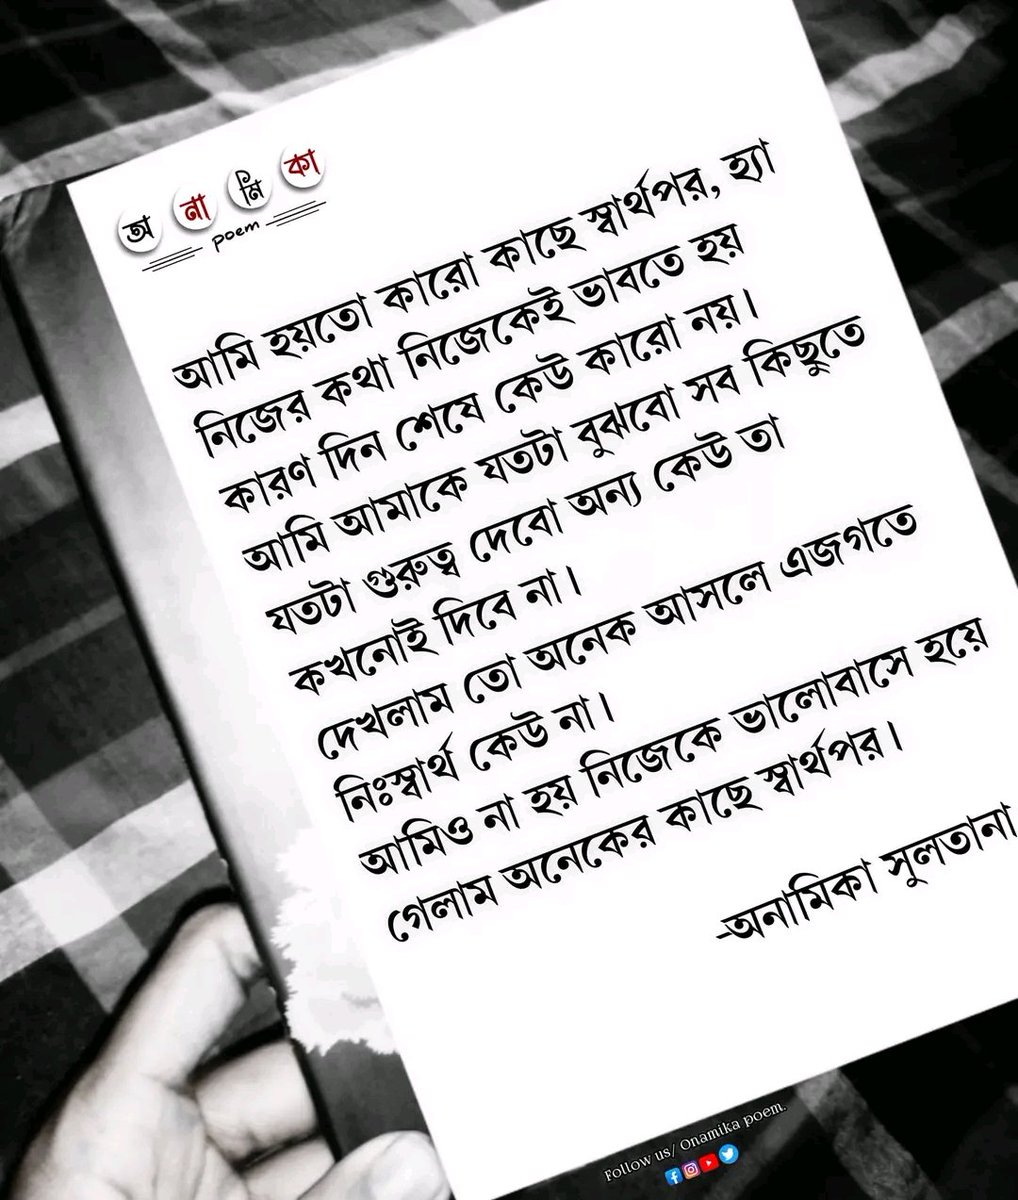 অনামিকা
poem
আমি হয়তো কারো কাছে স্বার্থপর, হ্যা
নিজের কথা নিজেকেই ভাবতে হয়
কারণ দিন শেষে কেউ কারো নয়।
আমি আমাকে যতটা বুঝবো সব কিছুতে
যতটা গুরুত্ব দেবো অন্য কেউ তা
কখনোই দিবে না।
দেখলাম তো অনেক আসলে এজগতে
নিঃস্বার্থ কেউ না।
আমিও না হয় নিজেকে ভালোবাসে হয়ে
গেলাম অনেকের কাছে স্বার্থপর।
-অনামিকা সুলতানা
Follow us/ Onamika poem.